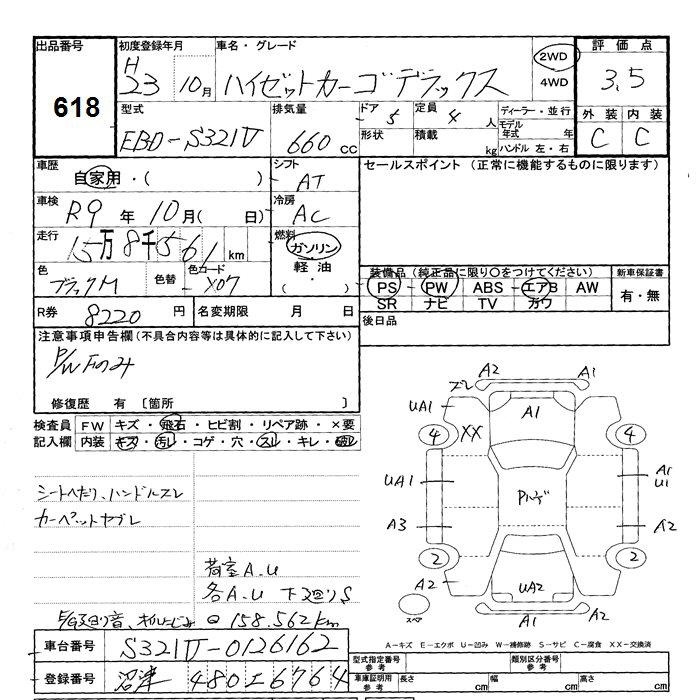 出品番号
618
初度登録年月
H
23 10月
車名・グレード
ハイゼットカーゴデラックス
2WD
4WD
評価点
3.5
型式
EBD-S321V
排気量
660 cc
ドア 5
形状
定員 4 人
積載 kg
ディーラー・並行
モデル年式 年
ハンドル 左・右
外装 内装
C C
車歴
自家用・( )
シフト
AT
セールスポイント (正常に機能するものに限ります)
車検
R9 年 10月( 日)
冷房
AC
走行
15万8千561km
燃料
ガソリン
軽油
・( )
色
ブラックM
色替
色コード
X07
装備品 (純正品に限り○をつけてください)
PS PW ABS エアB AW
SR ナビ TV カワ
新車保証書
有・無
R券 8220 円
名変期限 月 日
後日品
注意事項申告欄(不具合内容等は具体的に記入して下さい)
P/W Fのみ
修復歴 有 〔箇所 〕
検査員記入欄
FW キズ・飛石・ヒビ割・リペア跡・×要
内装 キズ・汚レ・コゲ・穴・スレ・キレ・破レ
シートヘたり、ハンドルスレ
カーペットヤブレ
荷室A.U
各A.U 下廻りS
158.562km
車台番号 S321V-0126162
登録番号 沼津 480 6764
A2 A1
ズレ
UA1 A1
4 XX 4
UA1 A1
U1
Pハゲ
A3 A2
2 2
A2 UA2
A1 A2
スペア
A-キズ E-エクボ U-凹み W-補修跡 S-サビ C-腐食 XX-交換済
型式指定番号 参考
類別区分番号 参考
車庫証明用 参考
長さ cm
幅 cm
高さ cm